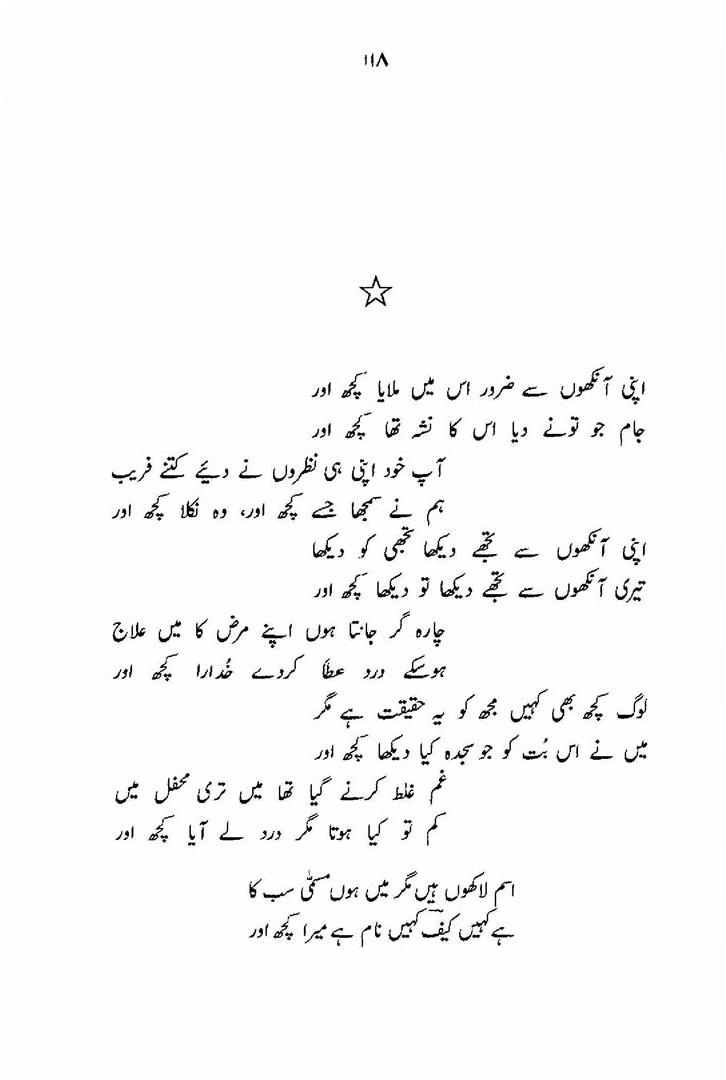 ۱۱۸
☆
اپنی آنکھوں سے ضرور اس میں ملایا کچھ اور
جام جو تونے دیا اس کا نشہ تھا کچھ اور
آپ خود اپنی ہی نظروں نے دئیے کتنے فریب
ہم نے سمجھا جسے کچھ اور، وہ نکلا کچھ اور
اپنی آنکھوں سے تجھے دیکھا تجھی کو دیکھا
تیری آنکھوں سے تجھے دیکھا تو دیکھا کچھ اور
چارہ گر جانتا ہوں اپنے مرض کا میں علاج
ہوسکے درد عطا کردے خُدارا کچھ اور
لوگ کچھ بھی کہیں مجھ کو یہ حقیقت ہے مگر
میں نے اس بُت کو جو سجدہ کیا دیکھا کچھ اور
غم غلط کرنے گیا تھا میں تری محفل میں
کم تو کیا ہوتا مگر درد لے آیا کچھ اور
اسم لاکھوں ہیں مگر میں ہوں مسمّٰی سب کا
ہے کہیں کیفؔ کہیں نام ہے میرا کچھ اور